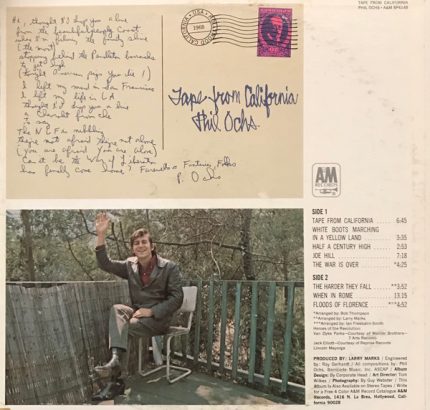 TAPE FROM CALIFORNIA
PHIL OCHS · A&M SP4148
CALIFORNIA · USA
1968
Hi, thought I'd drop you a line
from the beautiful people Coast
when I'm filming the family alive
(the most)
stopping behind the Pendleton barracks
to get high
I left my mind in San Francisco
I left my life in L A
thought I'd drop you a line
a
The N L F is
They're not afraid they're not alone
(you are afraid You are alone)
has finally come home? Farewells &
P. Ochs
Tape from California
Phil Ochs.
AM
RECORDS
SIDE 1
TAPE FROM CALIFORNIA ...... 6:45
WHITE BOOTS MARCHING
IN A YELLOW LAND ...... 3:35
HALF A CENTURY HIGH ...... 2:53
JOE HILL ...... 7:18
THE WAR IS OVER ...... *4:25
SIDE 2
THE HARDER THEY FALL ...... **3:52
WHEN IN ROME ...... 13:15
FLOODS OF FLORENCE ...... ***4:52
*Arranged by: Bob Thompson
**Arranged by: Larry Marks
***Arranged by: Ian Freebairn-Smith
Heroes of the Revolution
Van Dyke Parks—Courtesy of Warner Brothers-
7 Arts Records
Jack Elliott—Courtesy of Reprise Records
Lincoln Mayorga
PRODUCED BY: LARRY MARKS / Engineered
by: Ray Gerhardt / All compositions by: Phil
Ochs, Barricade Music, Inc. ASCAP / Album
Design: By Corporate Head / Art Director: Tom
Wilkes / Photography: By Guy Webster / This
Album Is Also Available on Stereo Tapes / Write
for a Free 4 Color A&M Record Catalogue A&M
Records, 1416 N. La Brea, Hollywood, Cali-
fornia 90028